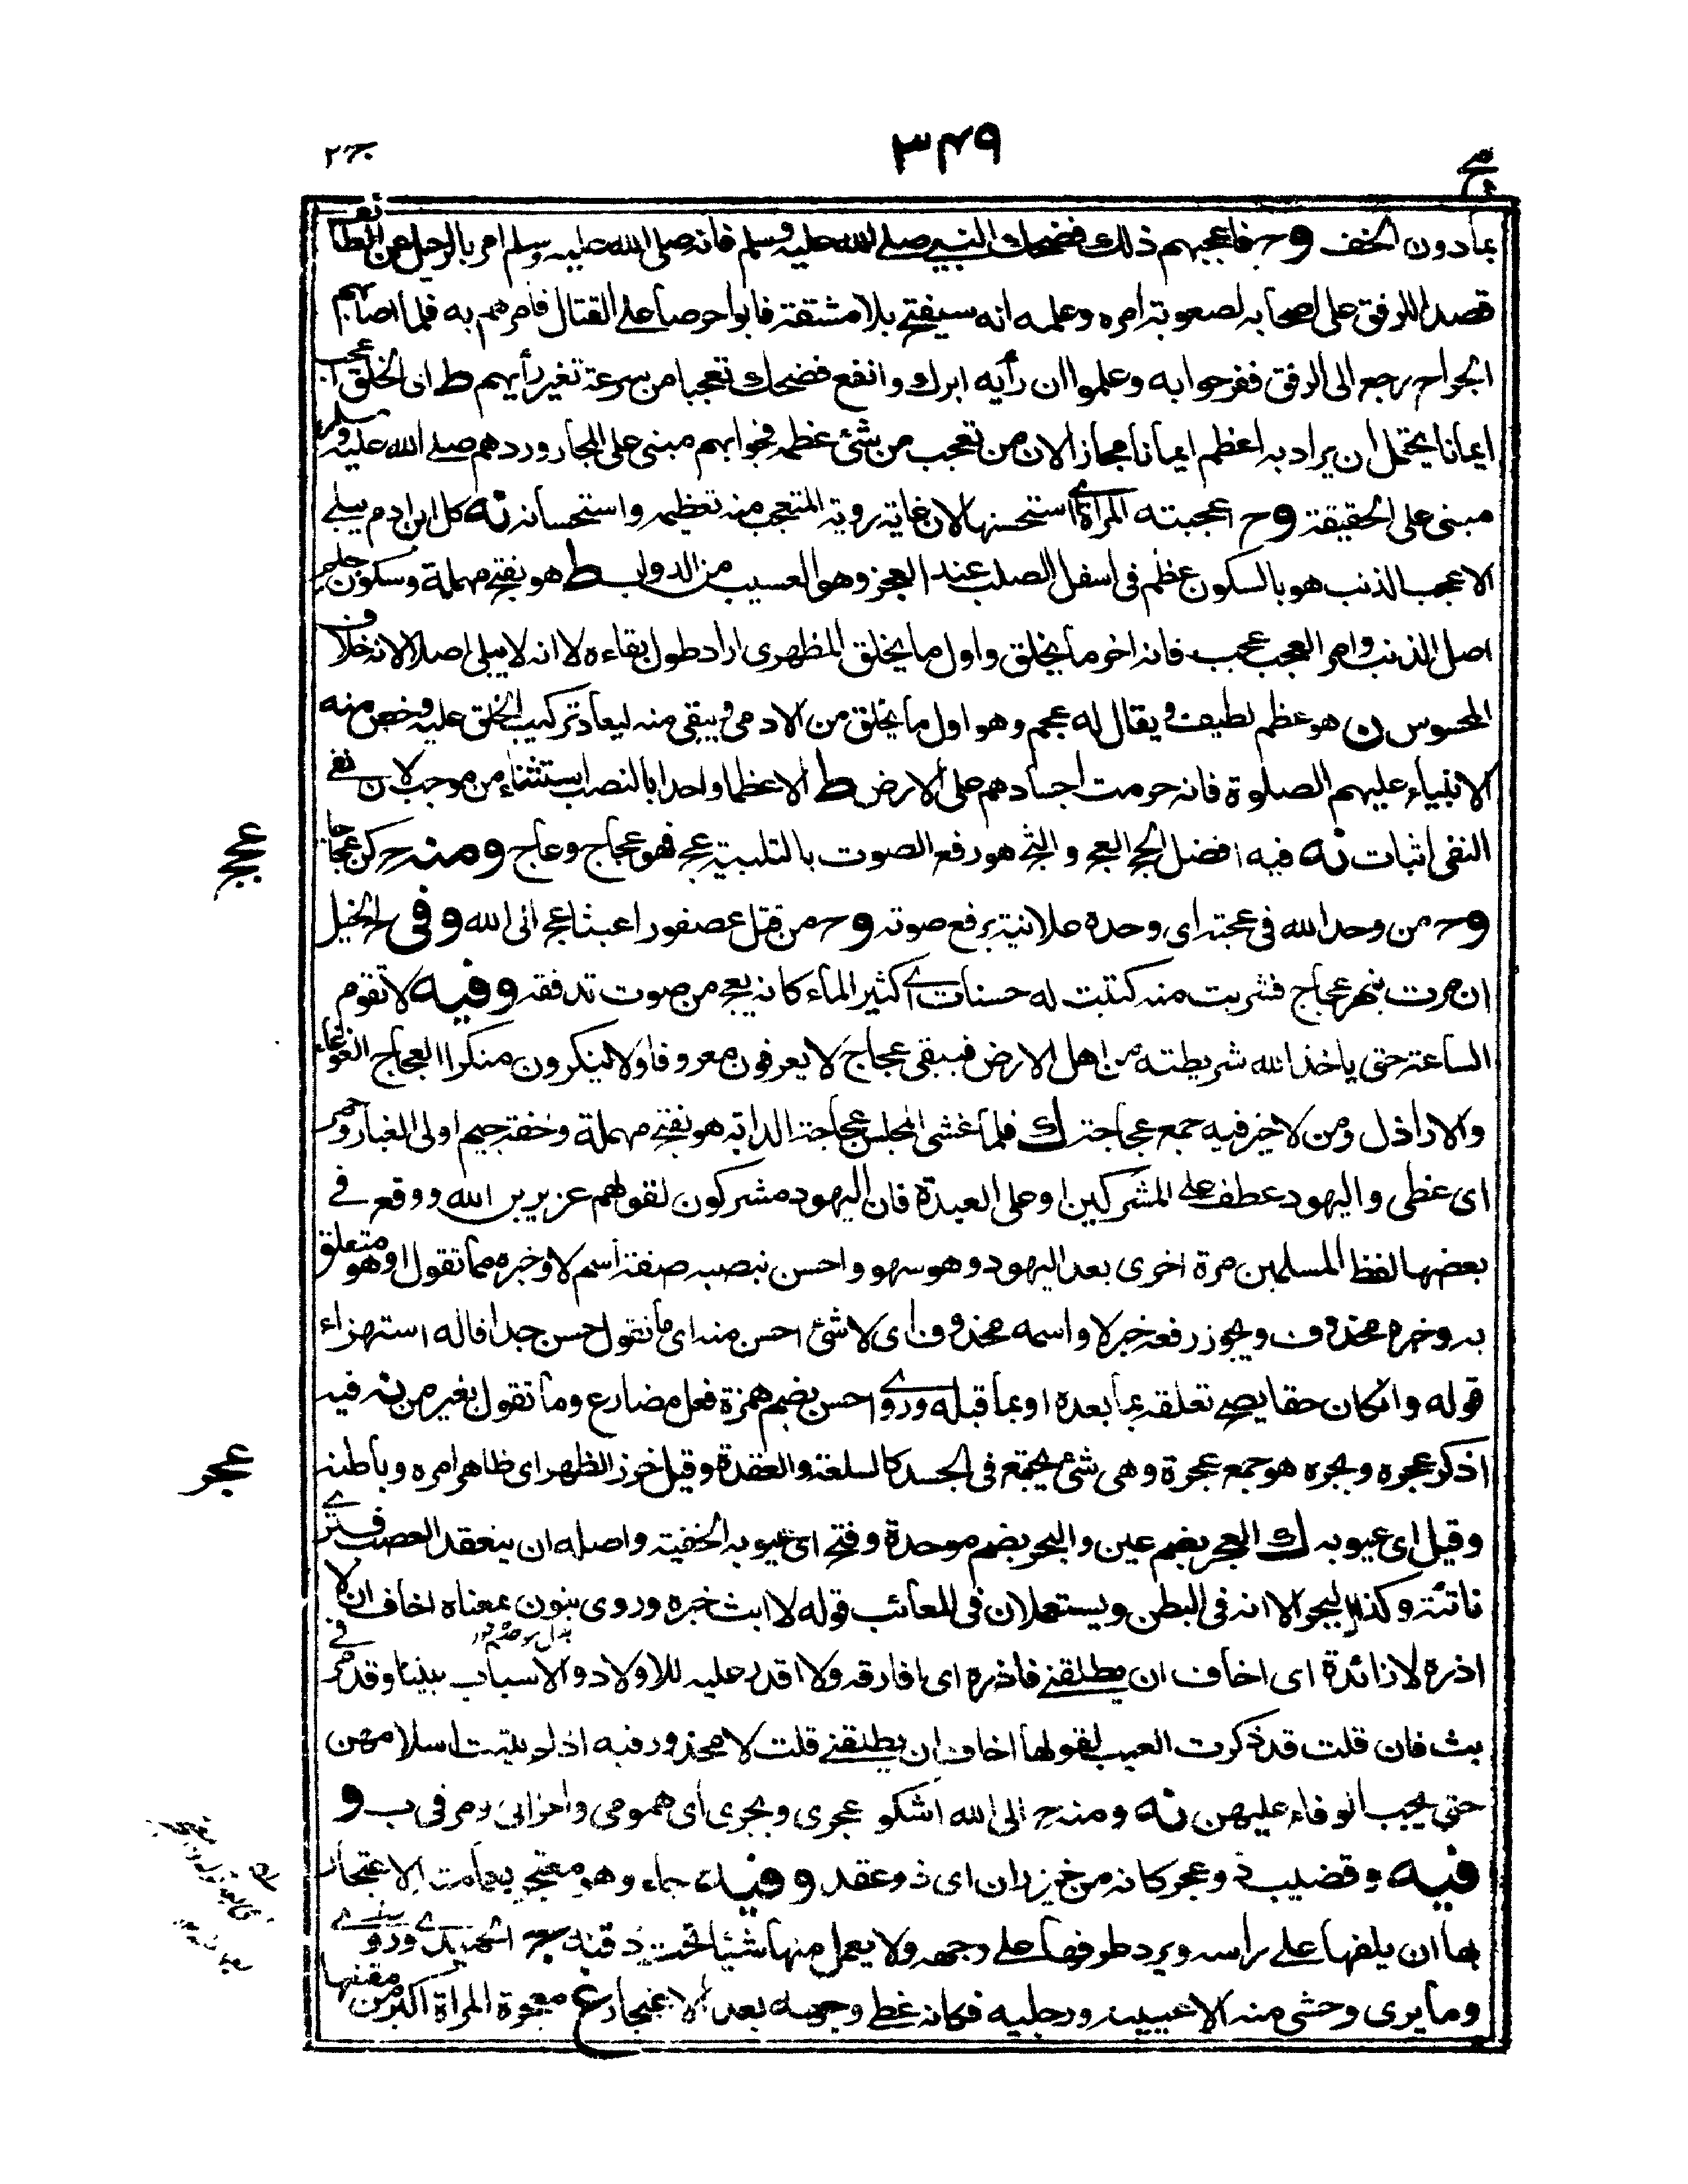 ج٢
٣٤٩
عج
بمادون الخف وح فاعجبهم ذلك فضحك النبي صلى الله عليه وسلم فانه صلى الله عليه وسلم امر بالرحيل عن الطائف
قصدا للرفق على اصحابه لصعوبة امره وعلمه انه سيفتح بلا مشقة فابوا حرصا على القتال فامرهم به فلما اصابهم
الجراح رجع الى الرفق ففرحوا به وعلموا ان رأيه ابرك وانفع فضحك تعجبا من سرعة تغير رأيهم ط اى الخلق اعجب
ايمانا يحتمل ان يراد به اعظم ايمانا مجازا لان من تعجب من شئ عظمه فجوابهم مبنى على المجاز وردهم صلى الله عليه وسلم
مبنى على الحقيقة وح اعجبته المرأة اى استحسنها لان غاية روية المتعجب منه تعظيمه واستحسانه نه كل ابن ادم يبلى
الا عجب الذنب هو بالسكون عظم فى اسفل الصلب عند العجز وهو العسيب من الدواب ط هو بفتح مهملة وسكون جيم
اصل الذنب وامر العجب عجب فانه اخر ما يخلق واول ما يخلق المظهرى اراد طول بقاءه لا انه لا يبلى اصلا لانه خلاف
المحسوس ن هو عظم لطيف ويقال له عجم وهو اول ما يخلق من الادمى ويبقى منه ليعاد تركيب الخلق عليه وخص منه
الانبياء عليهم الصلوة فانه حرمت اجسادهم على الارض ط الا عظما واحدا بالنصب استثناء من موجب لان نفى
النفى اثبات نه فيه افضل الحج العج والثج هو رفع الصوت بالتلبية عج فهو عجاج وعاج ومنه ح كن عجاجا
عجج
وح من وحد الله فى عجته اى وحده علانية برفع صوته وح من قتل عصفورا عبثا عج الى الله وفى ح الخيل
ان مرت بنهر عجاج فشربت منه كتبت له حسنات اى كثير الماء كانه يعج من صوت تدفقه وفيه لا تقوم
الساعة حتى ياخذ الله شريطته من اهل الارض فيبقى عجاج لا يعرفون معروفا ولا ينكرون منكرا العجاج الغوغاء
والاراذل ومن لا خير فيه جمع عجاجة ك فلما غشى المجلس عجاجة الدابة هو بفتح مهملة وخفة جيم اولى الغبار وخمر
اى غطى واليهود عطف على المشركين او على العبدة فان اليهود مشركون لقولهم عزير بن الله ووقع فى
بعضها لفظ المسلمين مرة اخرى بعد اليهود وهو سهو واحسن بنصبه صفة اسم لا وخبره مما تقول او هو متعلق
به وخبره محذوف ويجوز رفعه خبر لا واسمه محذوف اى لا شئ احسن منه اى ما تقول حسن جدا قاله استهزاء
قوله وان كان حقا يصح تعلقه بما بعده او بما قبله وروى احسن بضم همزة فعل مضارع وما تقول بغير من نه فيه
اذكر عجره وبجره هو جمع عجرة وهى شئ يجتمع فى الجسد كالسلعة والعقدة وقيل خرز الظهر اى ظاهر امره وباطنه
عجر
وقيل اى عيوبه ك العجر بضم عين والبجر بضم موحدة وفتح اى عيوبه الخفية واصله ان ينعقد العصب فترى
ناتئة وكذا البجر الا انه فى البطن ويستعملان فى المعائب قوله لا ابث خبره وروى بنون بمعناه اخاف ان لا
اذره لا زائدة اى اخاف ان يطلقنى فاذره اى افارقه ولا اقدر عليه للاولاد والاسباب بيننا وقد مر فى
بث فان قلت قد ذكرت العيب لقولها اخاف ان يطلقنى قلت لا محذور فيه اذ لم يثبت اسلامهن
حتى يجب الوفاء عليهن نه ومنه ح الى الله اشكو عجرى وبجرى اى همومى واحزانى ومر فى ب و
فيه وقضيب ذو عجر كانه من خيزران اى ذو عقد وفيه جاء وهو معتجر بعمامته الاعتجار
بها ان يلفها على راسه ويرد طرفها على وجهه ولا يعمل منها شيئا تحت ذقنه ج
وما يرى وحشى منه الا عينيه ورجليه فكانه غطى وجهه بعد الاعتجار غ معجرة المرأة اكبر من مقنعتها